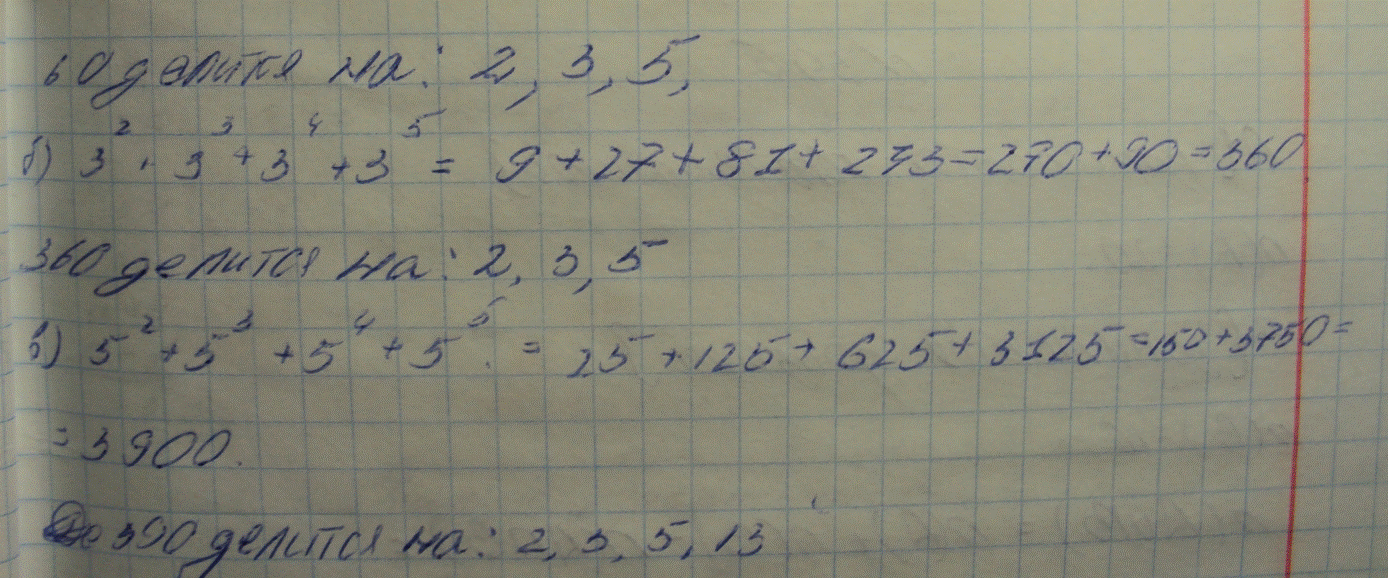 60 делится на: 2, 3, 5,
б) 3² + 3³ + 3⁴ + 3⁵ = 9 + 27 + 81 + 243 = 270 + 90 = 360
360 делится на: 2, 3, 5
в) 5² + 5³ + 5⁴ + 5⁵ = 25 + 125 + 625 + 3125 = 150 + 3750 =
= 3900.
390 делится на: 2, 3, 5, 13